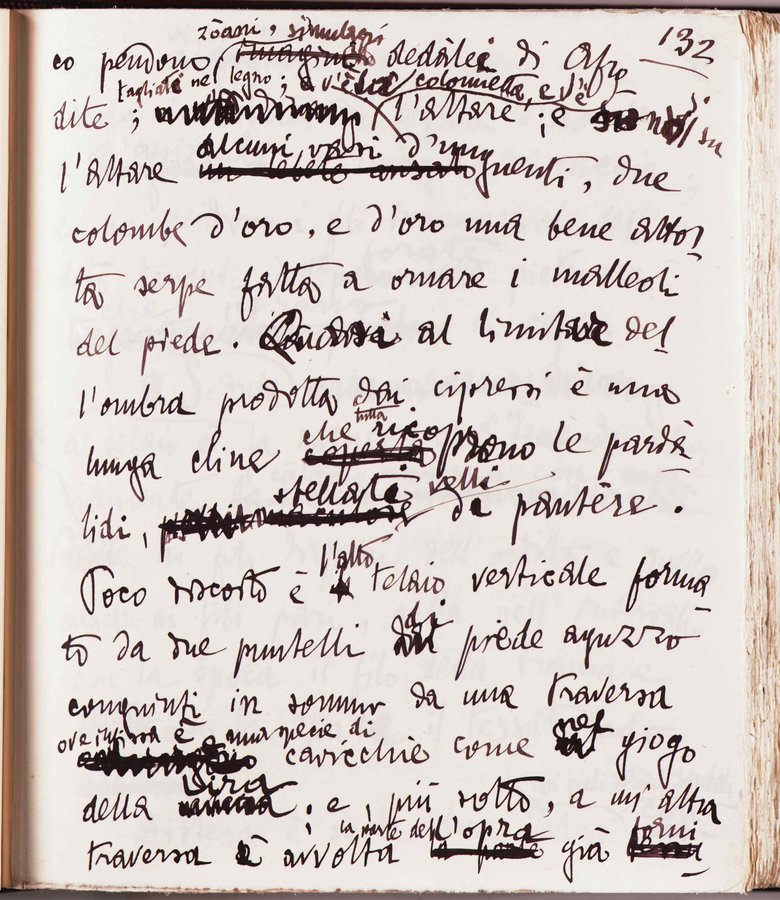 132
zòani, simulacri
co pendono imagini dedàlei di Afro
tagliati nel legno; e v'è la colonnetta, e v'è
dite; l'altare; e su
alcuni vasi d'un
l'altare un lebete ansato guenti, due
colombe d'oro, e d'oro una bene attor
ta serpe fatta a ornare i malleoli
del piede. Quasi al limitare del
l'ombra prodotta dai cipressi è una
tutta
che ricoprono
lunga cline coperta le pardà
stellati velli
lidi, di pantère.
l'alto
Poco discosto è telaio verticale forma
di
to da due puntelli dal piede aguzzo
congiunti in sommo da una traversa
ove infissa è una specie di
cavicchie come nel giogo
lira
della, e, più sotto, a un'altra
la parte dell'opra
traversa è avvolta la parte già